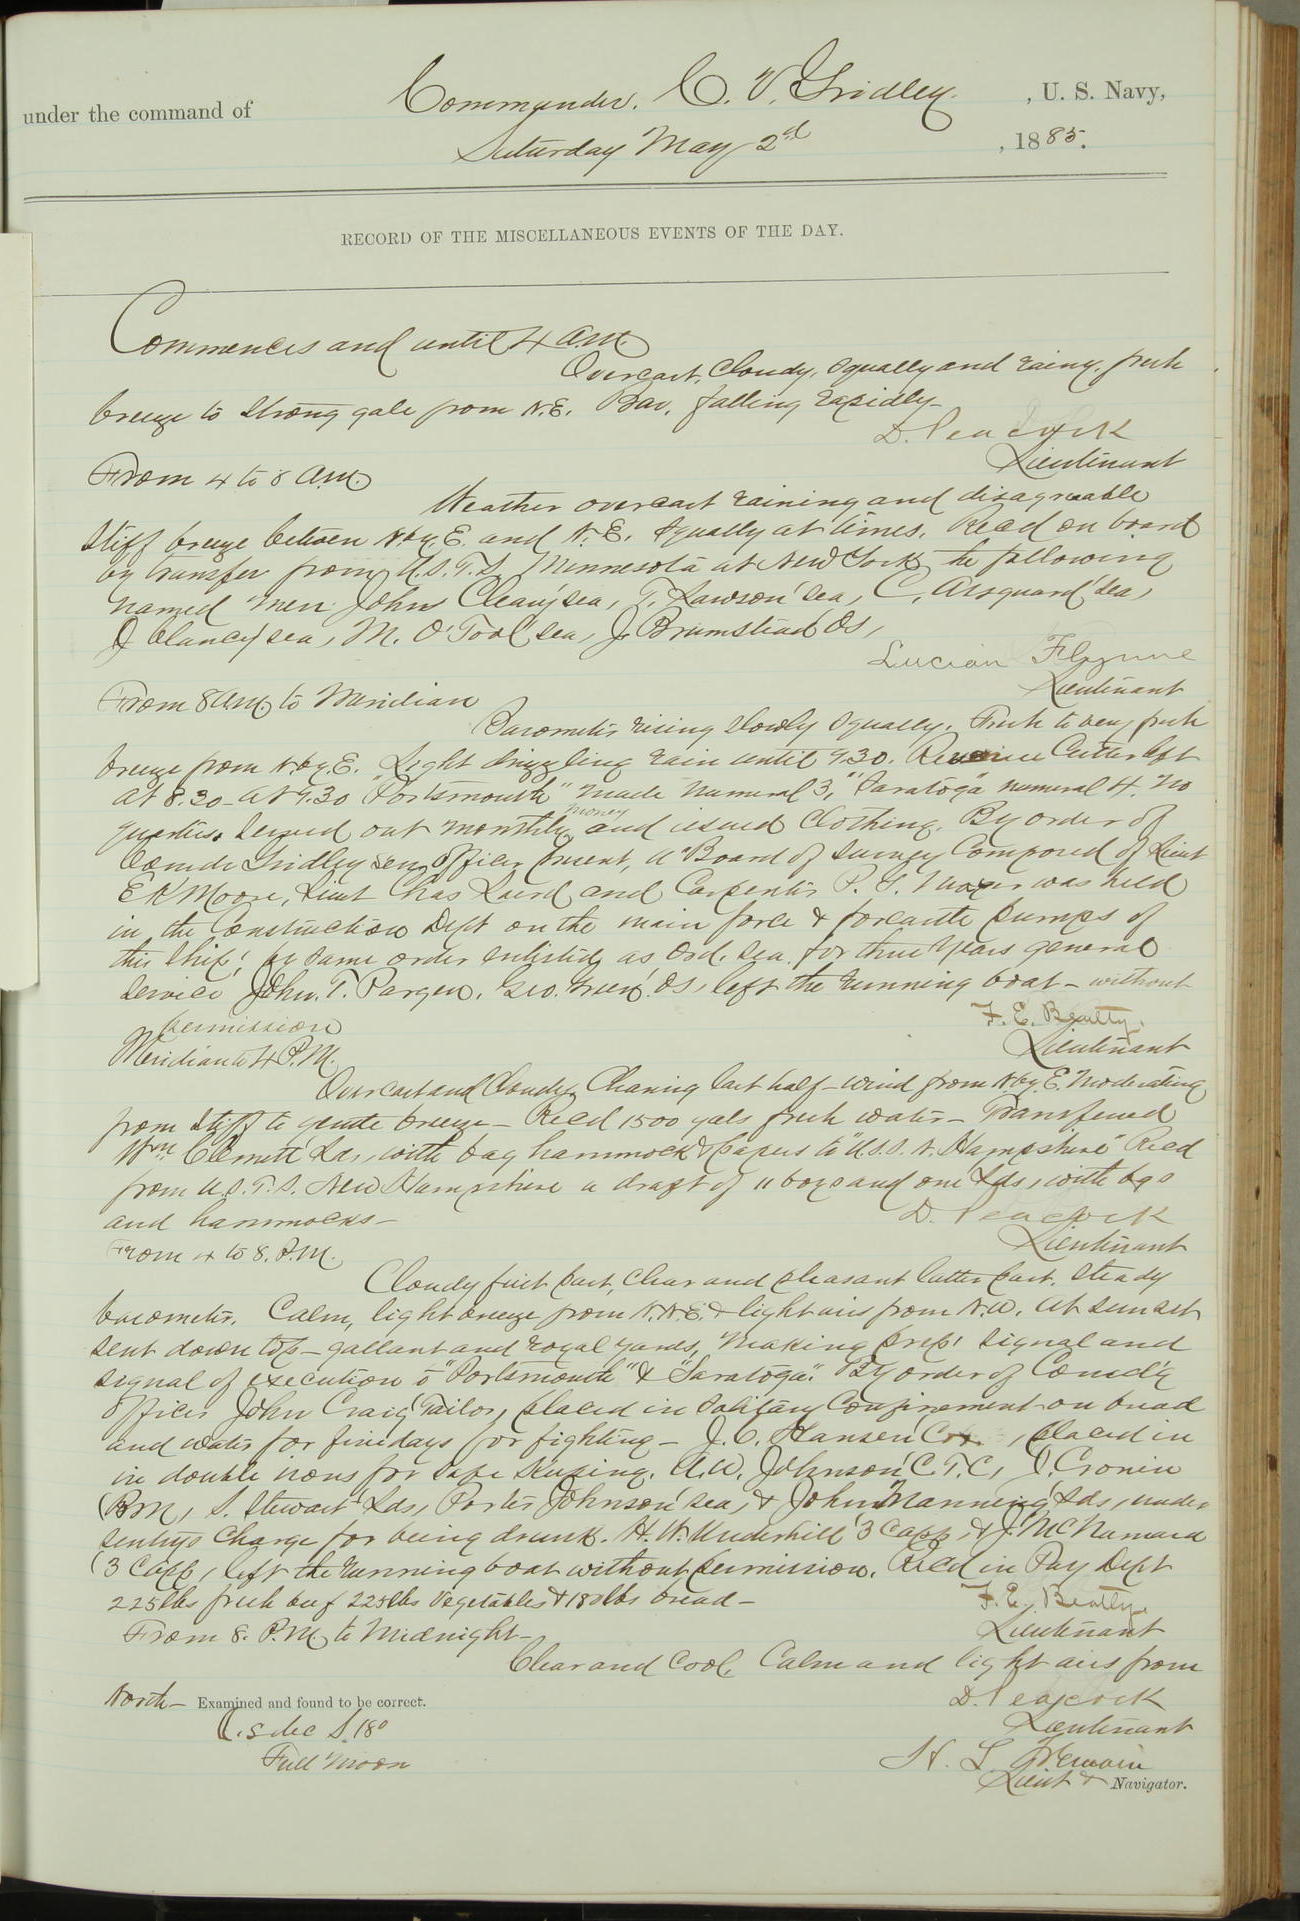 under the command of Commander. C. V. Gridley. , U. S. Navy,
Saturday May 2d , 1885.
RECORD OF THE MISCELLANEOUS EVENTS OF THE DAY.
Commences and until 4 A.M.
Overcast, Cloudy, squally and rainy, fresh
breeze to strong gale from N.E. Bar. falling rapidly—
D. Peacock
Lieutenant
From 4 to 8 A.M.
Weather overcast raining and disagreable
Stiff breeze between N.by.E. and N.E. squally at times. Recd on board
by transfer from U.S.T.S. Minnesota at New York the following
named men John Cleary sea, T. Lawson sea, C. sea,
J Clancey sea, M. O'Tool sea, J. Brumstead Os,
Lucian Flynne
Lieutenant
From 8 A.M. to Meridian
Barometer rising slowly squally. Fresh to very fresh
breeze from N.by.E. Light drizzling rain until 9.30. Revenue Cutter left
at 8.30 — at 9.30 "Portsmouth" made numeral 3, "Saratoga" numeral 4. No
quarters. Served out monthly money and issued Clothing. By order of
Comdr Gridley sen. officer present, a Board of Survey Composed of Lieut
E K Moore, Lieut Chas Laird and Carpenter P. T. was held
in the Construction Dept on the main force & forecastle pumps of
this ship; by same order enlisted as Ord. Sea. for three years general
service John. T. Pargen. Geo. Green Os, left the running boat — without
permission
F. E. Beatty.
Lieutenant
Meridian to 4 P.M.
Overcast and Cloudy, Clearing last half — wind from N by E. Moderating
from stiff to gentle breeze — Recd 1500 gals fresh water — Transferred
Wm Clement Lds, with bag hammock & papers to "U.S.S. N. Hampshire" Recd
from U.S.T.S. New Hampshire a draft of 11 boys and one Lds, with bgs
and hammocks—
D. Peacock
Lieutenant
From 4 to 8. P.M.
Cloudy first part, Clear and pleasant latter part. Steady
barometer. Calm, light breeze from N.N.E. & light airs from N.W. At sunset
sent down top-gallant and royal yards, making prep. signal and
signal of execution to "Portsmouth" & "Saratoga". By order of Comd'g
Officer John Craig Tailor, placed in Solitary Confinement on bread
and water for five days for fighting — J. C. Hansen Cox. , placed in
in double irons for safe keeping. A.W. Johnson C.T.C, J. Cronin
BM, S. Stewart Lds, Porter Johnson sea, & John Manning Lds, under
sentry's charge for being drunk. H. W. Underhill 3 c app, & J. McNamara
3 c app, left the running boat without permission. Recd in Pay Dept
225 lbs fresh beef 225 lbs Vegetables & 180 lbs bread—
F. E. Beatty.
Lieutenant
From 8. P.M. to Midnight—
Clear and Cool. Calm and light airs from
North—
D. Peacock
Lieutenant
Examined and found to be correct.
Full Moon
Lieut & Navigator.